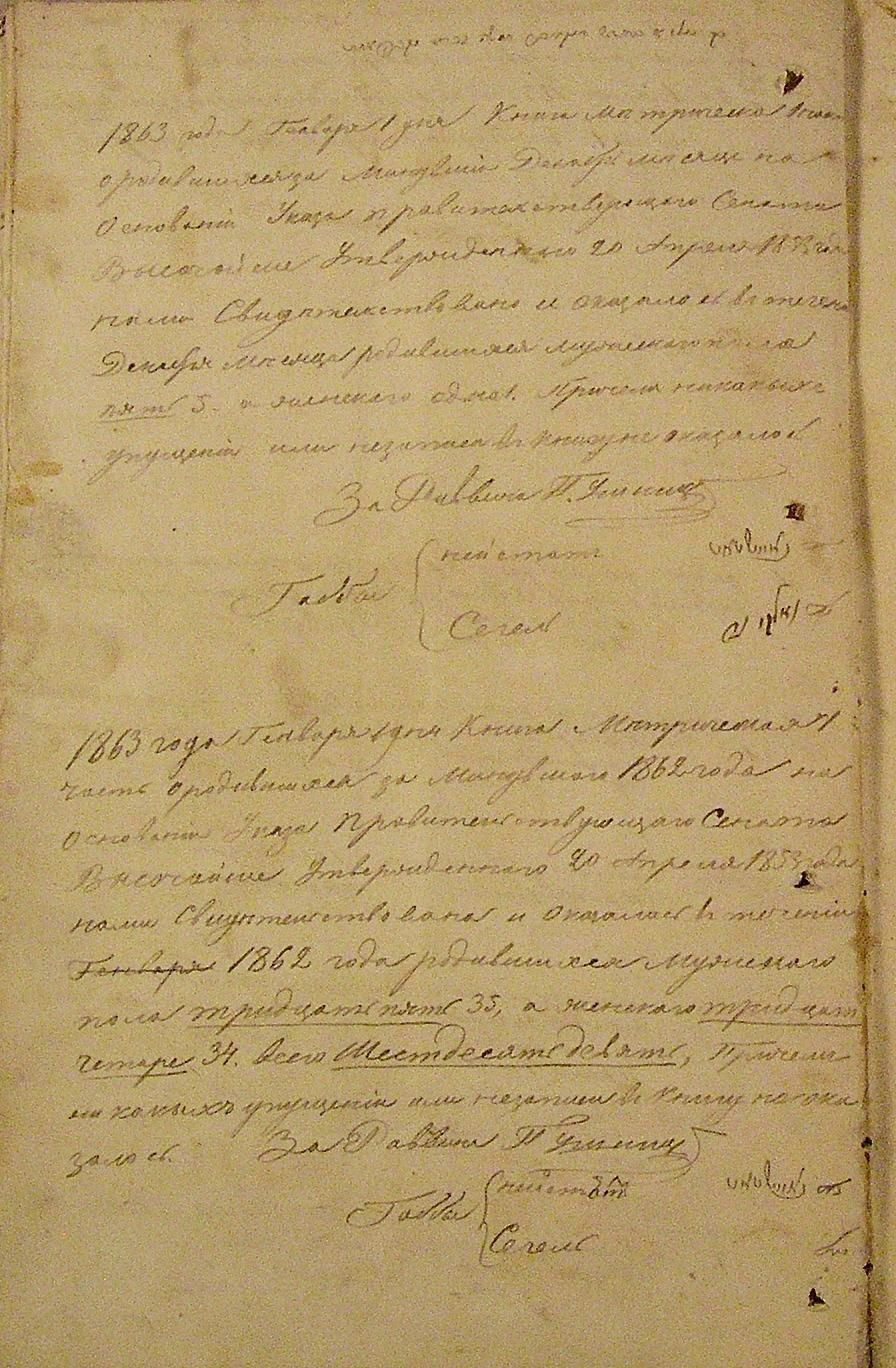 1863 года Генваря 1 дня Книга Метрическа
о родившихся за Минувший Декабрь месяц на
Основании Указа Правительствующаго Сената
Высочайше Утвержденнаго 20 Апреля
нами Свидетельствовано и оказалось в течении
Декабря месяца родившихся мужескаго пола
пять 5. а женскаго одна 1. Причем никакихъ
упущений или незаписи в книгу не оказалось
За Раввина П. Ушниц
Габбаи
Нейштат
Сегель
1863 года Генваря 1 дня Книга Метрическая 1
часть о родившихся за Минувшаго 1862 года на
Основании Указа Правительствующаго Сената
Высочайше Утвержденнаго 20 Апреля 1853 года
нами Свидетельствована и оказалось в течении
Генваря 1862 года родившихся Мужескаго
пола тридцать пять 35, а женскаго тридцать
четаре 34. всего Шестдесятъ девять, Причем
ни какихъ упущений или незаписи в Книгу не ока
залось. За Раввина П Ушниц
Габбаи
Нейштат
Сегель